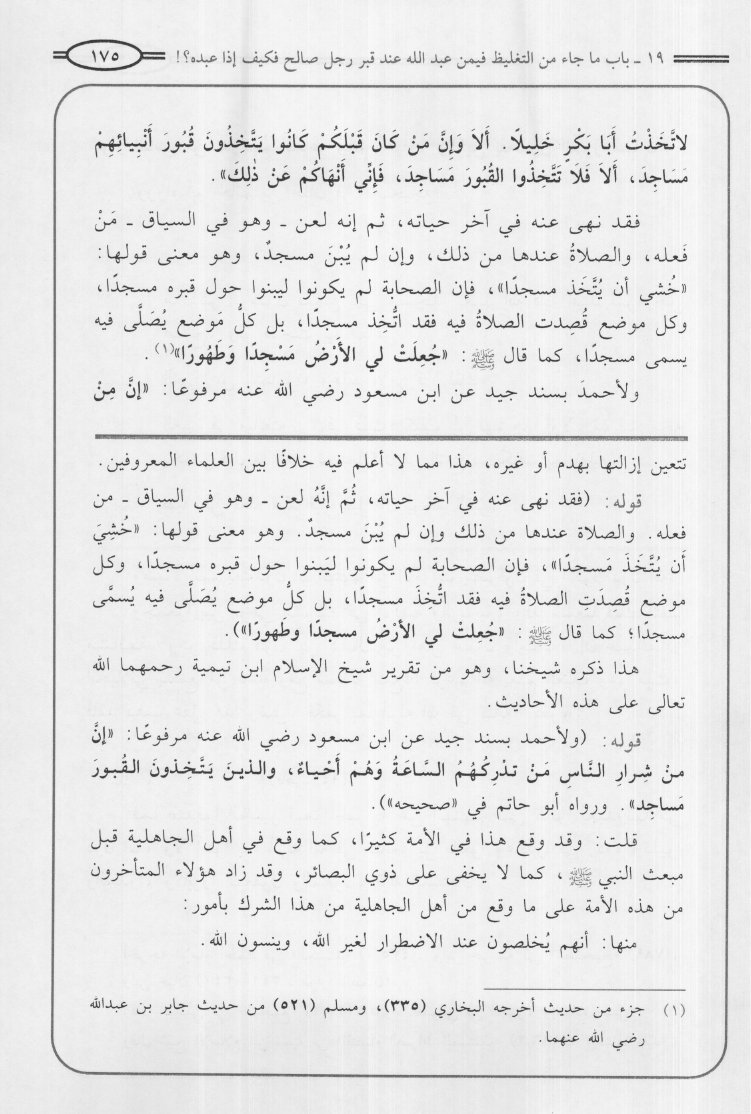 ١٩ ـ باب ما جاء من التغليظ فيمن عبد الله عند قبر رجل صالح فكيف إذا عبده؟! ١٧٥
لاتَّخَذْتُ أَبَا بَكْرٍ خَلِيلًا. أَلاَ وَإِنَّ مَنْ كَانَ قَبْلَكُمْ كَانُوا يَتَّخِذُونَ قُبُورَ أَنْبِيائِهِمْ
مَسَاجِدَ، أَلاَ فَلَا تَتَّخِذُوا القُبُورَ مَسَاجِدَ، فَإِنِّي أَنْهَاكُمْ عَنْ ذٰلِكَ».
فقد نهى عنه في آخر حياته، ثم إنه لعن ـ وهو في السياق ـ مَنْ
فَعله، والصلاةُ عندها من ذلك، وإن لم يُبْنَ مسجدٌ، وهو معنى قولها:
«خُشي أن يُتَّخَذ مسجدًا»، فإن الصحابة لم يكونوا ليبنوا حول قبره مسجدًا،
وكل موضع قُصِدت الصلاةُ فيه فقد اتُّخِذ مسجدًا، بل كلُّ مَوضع يُصَلَّى فيه
يسمى مسجدًا، كما قال ﷺ: «جُعِلَتْ لي الأَرْضُ مَسْجِدًا وَطَهُورًا»(١).
ولأحمدَ بسند جيد عن ابن مسعود رضي الله عنه مرفوعًا: «إنَّ مِنْ
تتعين إزالتها بهدم أو غيره، هذا مما لا أعلم فيه خلافًا بين العلماء المعروفين.
قوله: (فقد نهى عنه في آخر حياته، ثُمَّ إنَّهُ لعن ـ وهو في السياق ـ من
فعله. والصلاة عندها من ذلك وإن لم يُبْنَ مسجدٌ. وهو معنى قولها: «خُشِيَ
أن يُتَّخَذَ مَسجدًا»، فإن الصحابة لم يكونوا ليَبنوا حول قبره مسجدًا، وكل
موضع قُصِدَتِ الصلاةُ فيه فقد اتُّخِذَ مسجدًا، بل كلُّ موضع يُصَلَّى فيه يُسمَّى
مسجدًا؛ كما قال ﷺ: «جُعلتْ لي الأرْضُ مسجدًا وطَهورًا»).
هذا ذكره شيخنا، وهو من تقرير شيخ الإسلام ابن تيمية رحمهما الله
تعالى على هذه الأحاديث.
قوله: (ولأحمد بسند جيد عن ابن مسعود رضي الله عنه مرفوعًا: «إنَّ
منْ شِرارِ النَّاسِ مَنْ تدْرِكُهُمُ السَّاعَةُ وَهُمْ أَحْياءٌ، والذينَ يَتَّخِذونَ القُبورَ
مَساجِد». ورواه أبو حاتم في «صحيحه»).
قلت: وقد وقع هذا في الأمة كثيرًا، كما وقع في أهل الجاهلية قبل
مبعث النبي ﷺ، كما لا يخفى على ذوي البصائر، وقد زاد هؤلاء المتأخرون
من هذه الأمة على ما وقع من أهل الجاهلية من هذا الشرك بأمور:
منها: أنهم يُخلصون عند الاضطرار لغير الله، وينسون الله.
(١) جزء من حديث أخرجه البخاري (٣٣٥)، ومسلم (٥٢١) من حديث جابر بن عبدالله
رضي الله عنهما.